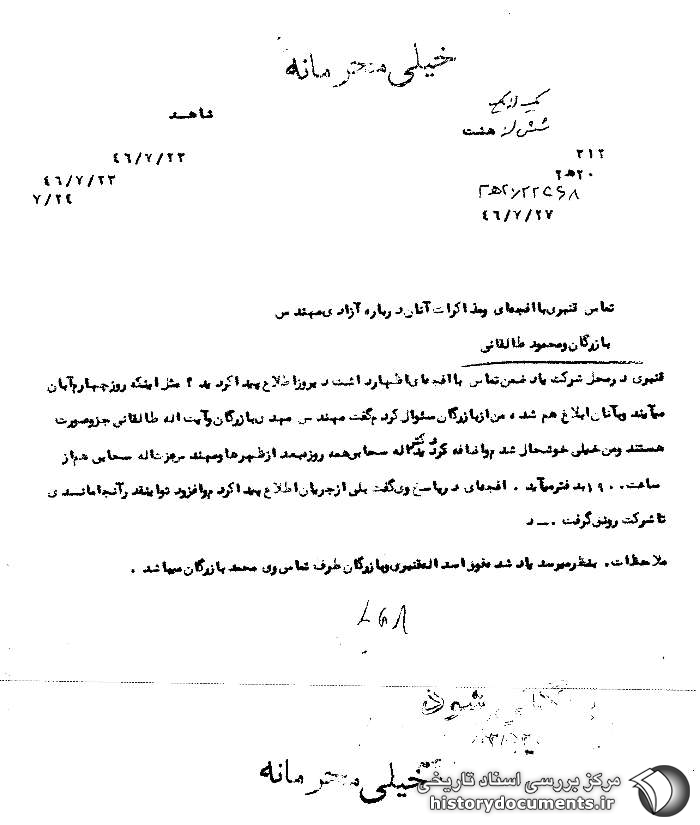 خیلی محرمانه
شاهد
یک از یک
شش از هشت
۴۶/۷/۲۳
۳۱۲
۴۶/۷/۲۳
۲۰ه۲
۷/۲۴
۴۶/۷/۲۷
تماس قنبری با افجه‌ای و مذاکرات آنان درباره آزادی مهندس
بازرگان و محمود طالقانی
قنبری در محل شرکت یاد ضمن تماس با افجه‌ای اظهار داشت دیروز اطلاع پیدا کردید ؟ مثل اینکه روز چهارم آبان
میآیند و بآنان ابلاغ هم شده ، من از بازرگان سئوال کردم گفت مهندس مهدی بازرگان و آیت اله طالقانی جزو صورت
هستند و من خیلی خوشحال شدم و اضافه کرد دکتر یداله سحابی همه روزه بعد از ظهرها و مهندس عزت اله سحابی هم از
ساعت ۱۹۰۰ بدفتر میآید . افجه‌ای در پاسخ وی گفت بلی از جریان اطلاع پیدا کردم و افزود تو اینقدر آنجا ماندی
تا شرکت رونق گرفت ــ د
ملاحظات . بنظر میرسد یاد شده فوق اسد اله قنبری و بازرگان طرف تماس وی محمد بازرگان میباشد .
خیلی محرمانه
مرکز بررسی اسناد تاریخی
historydocuments.ir